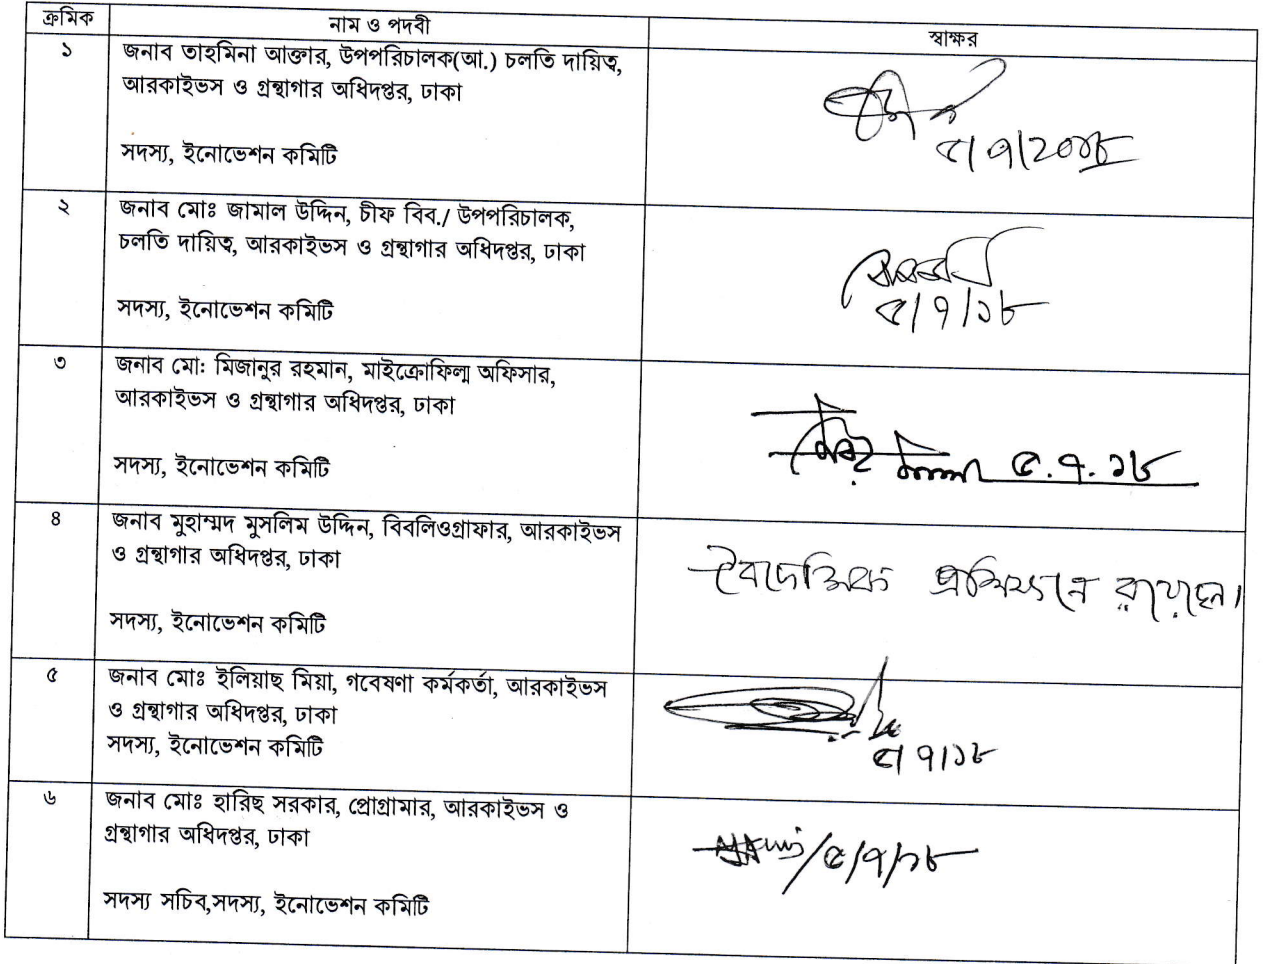 ক্রমিক নাম ও পদবী স্বাক্ষর
১ জনাব তাহমিনা আক্তার, উপপরিচালক(আ.) চলতি দায়িত্ব,
আরকাইভস ও গ্রন্থাগার অধিদপ্তর, ঢাকা
সদস্য, ইনোভেশন কমিটি
৫/৭/২০১৮
২ জনাব মোঃ জামাল উদ্দিন, চীফ বিব./ উপপরিচালক,
চলতি দায়িত্ব, আরকাইভস ও গ্রন্থাগার অধিদপ্তর, ঢাকা
সদস্য, ইনোভেশন কমিটি
৫/৭/১৮
৩ জনাব মো: মিজানুর রহমান, মাইক্রোফিল্ম অফিসার,
আরকাইভস ও গ্রন্থাগার অধিদপ্তর, ঢাকা
সদস্য, ইনোভেশন কমিটি
৫.৭.১৮
৪ জনাব মুহাম্মদ মুসলিম উদ্দিন, বিবলিওগ্রাফার, আরকাইভস
ও গ্রন্থাগার অধিদপ্তর, ঢাকা
সদস্য, ইনোভেশন কমিটি
বৈদেশিক প্রশিক্ষনে রয়েছেন।
৫ জনাব মোঃ ইলিয়াছ মিয়া, গবেষণা কর্মকর্তা, আরকাইভস
ও গ্রন্থাগার অধিদপ্তর, ঢাকা
সদস্য, ইনোভেশন কমিটি
৫/৭/১৮
৬ জনাব মোঃ হারিছ সরকার, প্রোগ্রামার, আরকাইভস ও
গ্রন্থাগার অধিদপ্তর, ঢাকা
সদস্য সচিব,সদস্য, ইনোভেশন কমিটি
/৫/৭/১৮